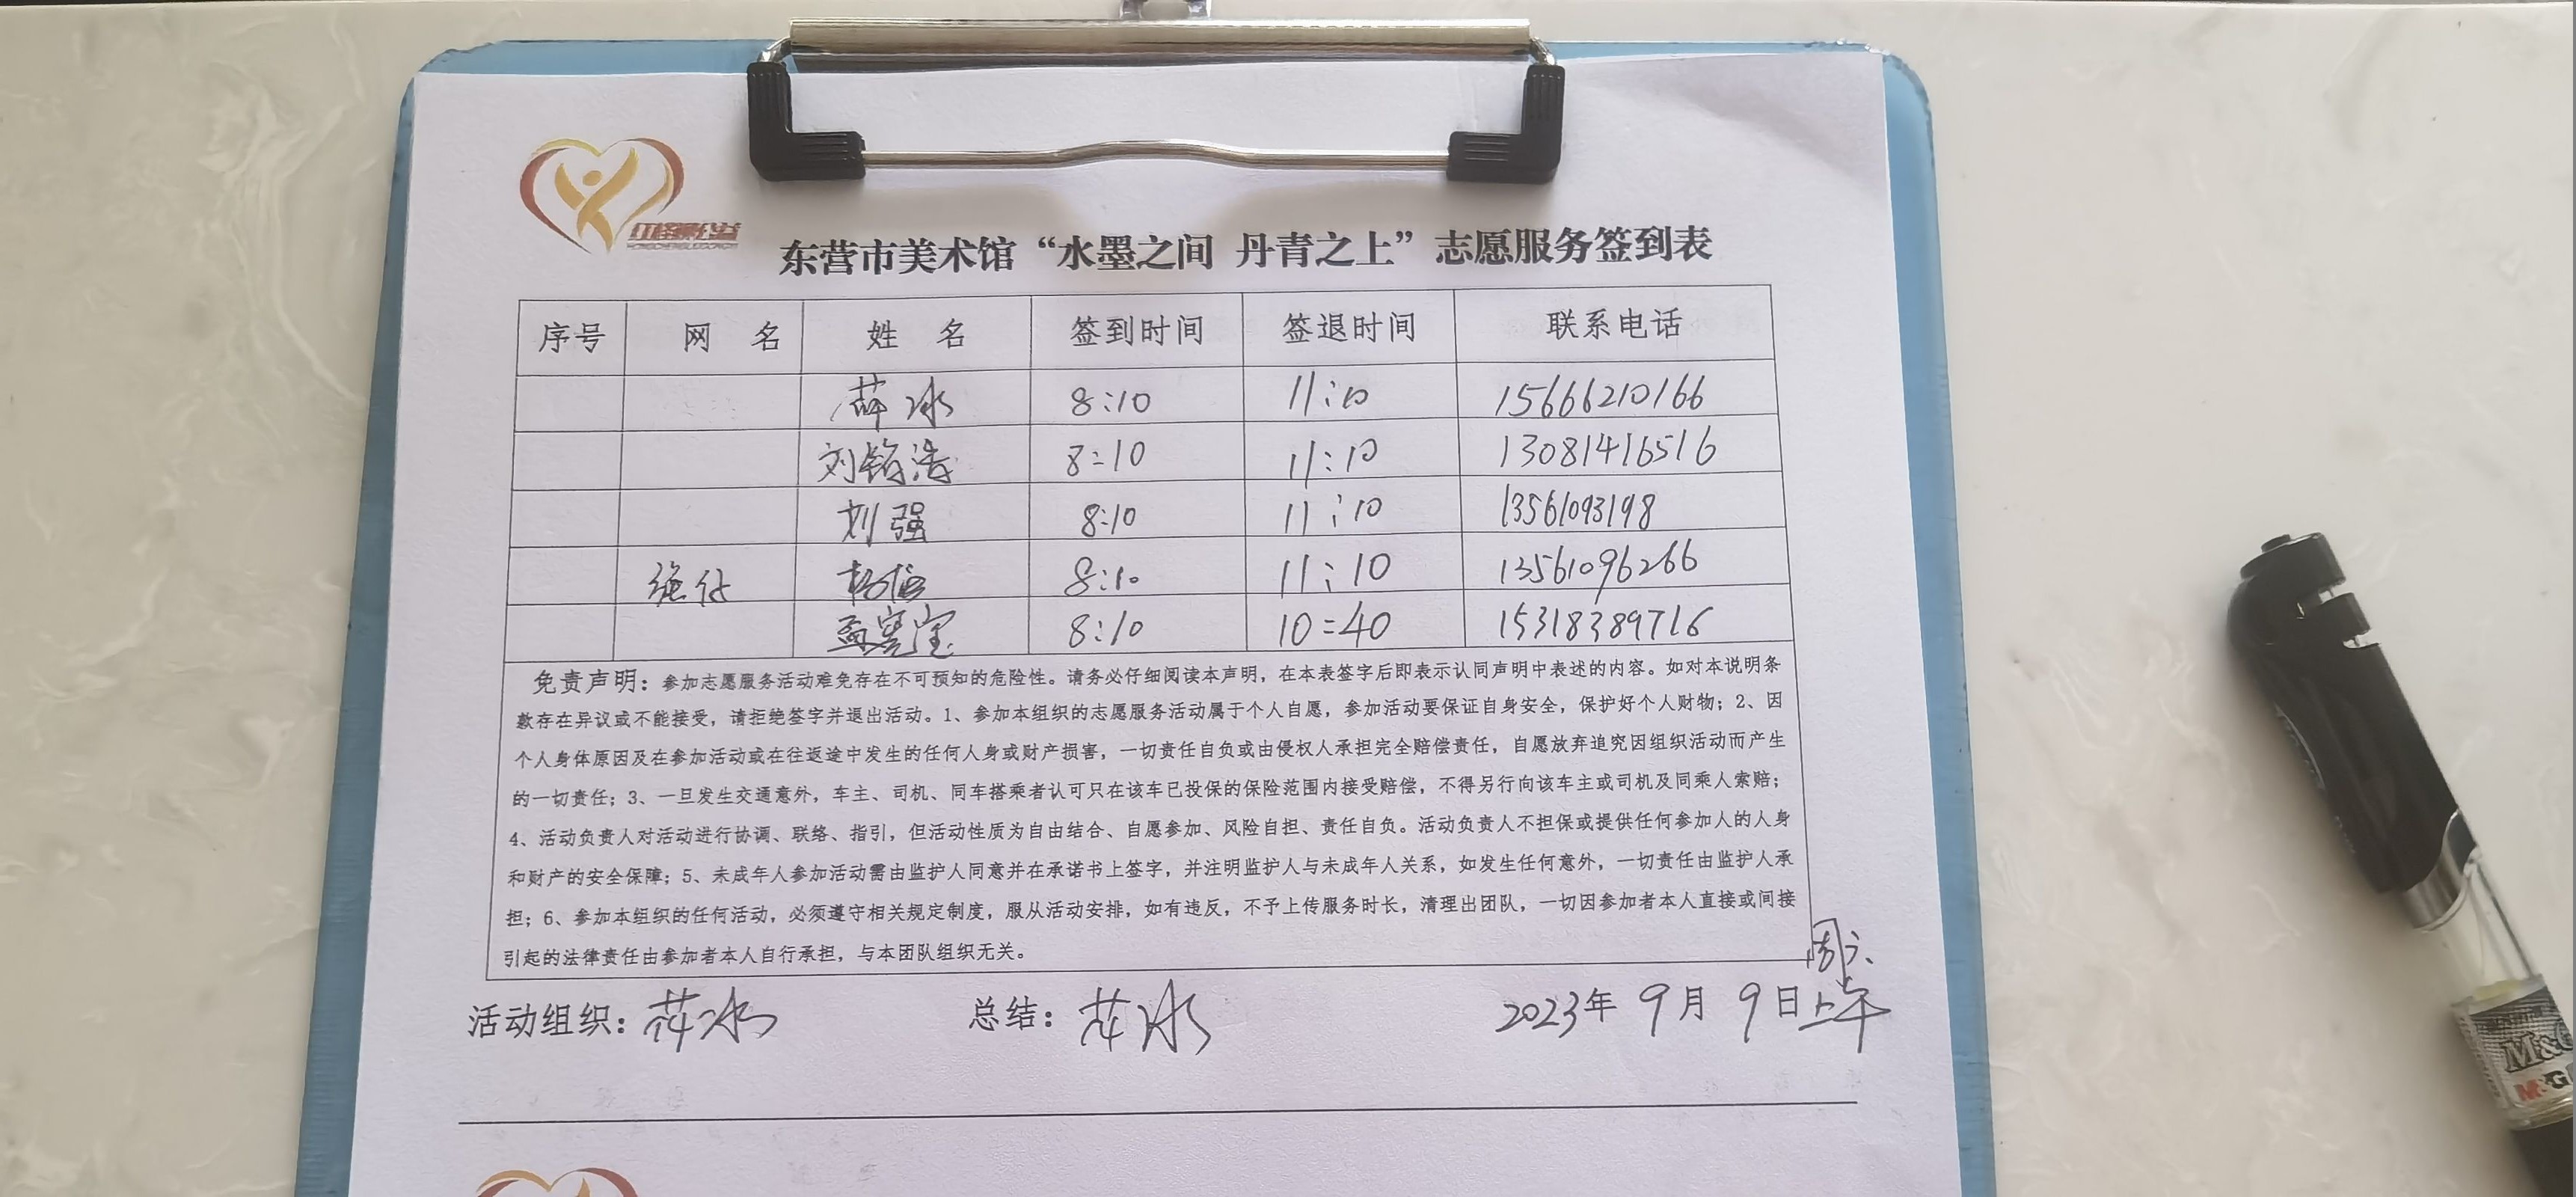 红橙绿公益
东营市美术馆“水墨之间 丹青之上”志愿服务签到表
序号 网 名 姓 名 签到时间 签退时间 联系电话
薛冰 8:10 11:10 15666210166
刘铭浩 8:10 11:10 13081416516
刘强 8:10 11:10 13561093198
8:10 11:10 13561096266
8:10 10:40 15318389716
免责声明：参加志愿服务活动难免存在不可预知的危险性。请务必仔细阅读本声明，在本表签字后即表示认同声明中表述的内容。如对本说明条
款存在异议或不能接受，请拒绝签字并退出活动。1、参加本组织的志愿服务活动属于个人自愿，参加活动要保证自身安全，保护好个人财物；2、因
个人身体原因及在参加活动或在往返途中发生的任何人身或财产损害，一切责任自负或由侵权人承担完全赔偿责任，自愿放弃追究因组织活动而产生
的一切责任；3、一旦发生交通意外，车主、司机、同车搭乘者认可只在该车已投保的保险范围内接受赔偿，不得另行向该车主或司机及同乘人索赔；
4、活动负责人对活动进行协调、联络、指引，但活动性质为自由结合、自愿参加、风险自担、责任自负。活动负责人不担保或提供任何参加人的人身
和财产的安全保障；5、未成年人参加活动需由监护人同意并在承诺书上签字，并注明监护人与未成年人关系，如发生任何意外，一切责任由监护人承
担；6、参加本组织的任何活动，必须遵守相关规定制度，服从活动安排，如有违反，不予上传服务时长，清理出团队，一切因参加者本人直接或间接
引起的法律责任由参加者本人自行承担，与本团队组织无关。
周六
活动组织：薛冰 总结：薛冰 2023年 9月 9日上午
M&G
M&G